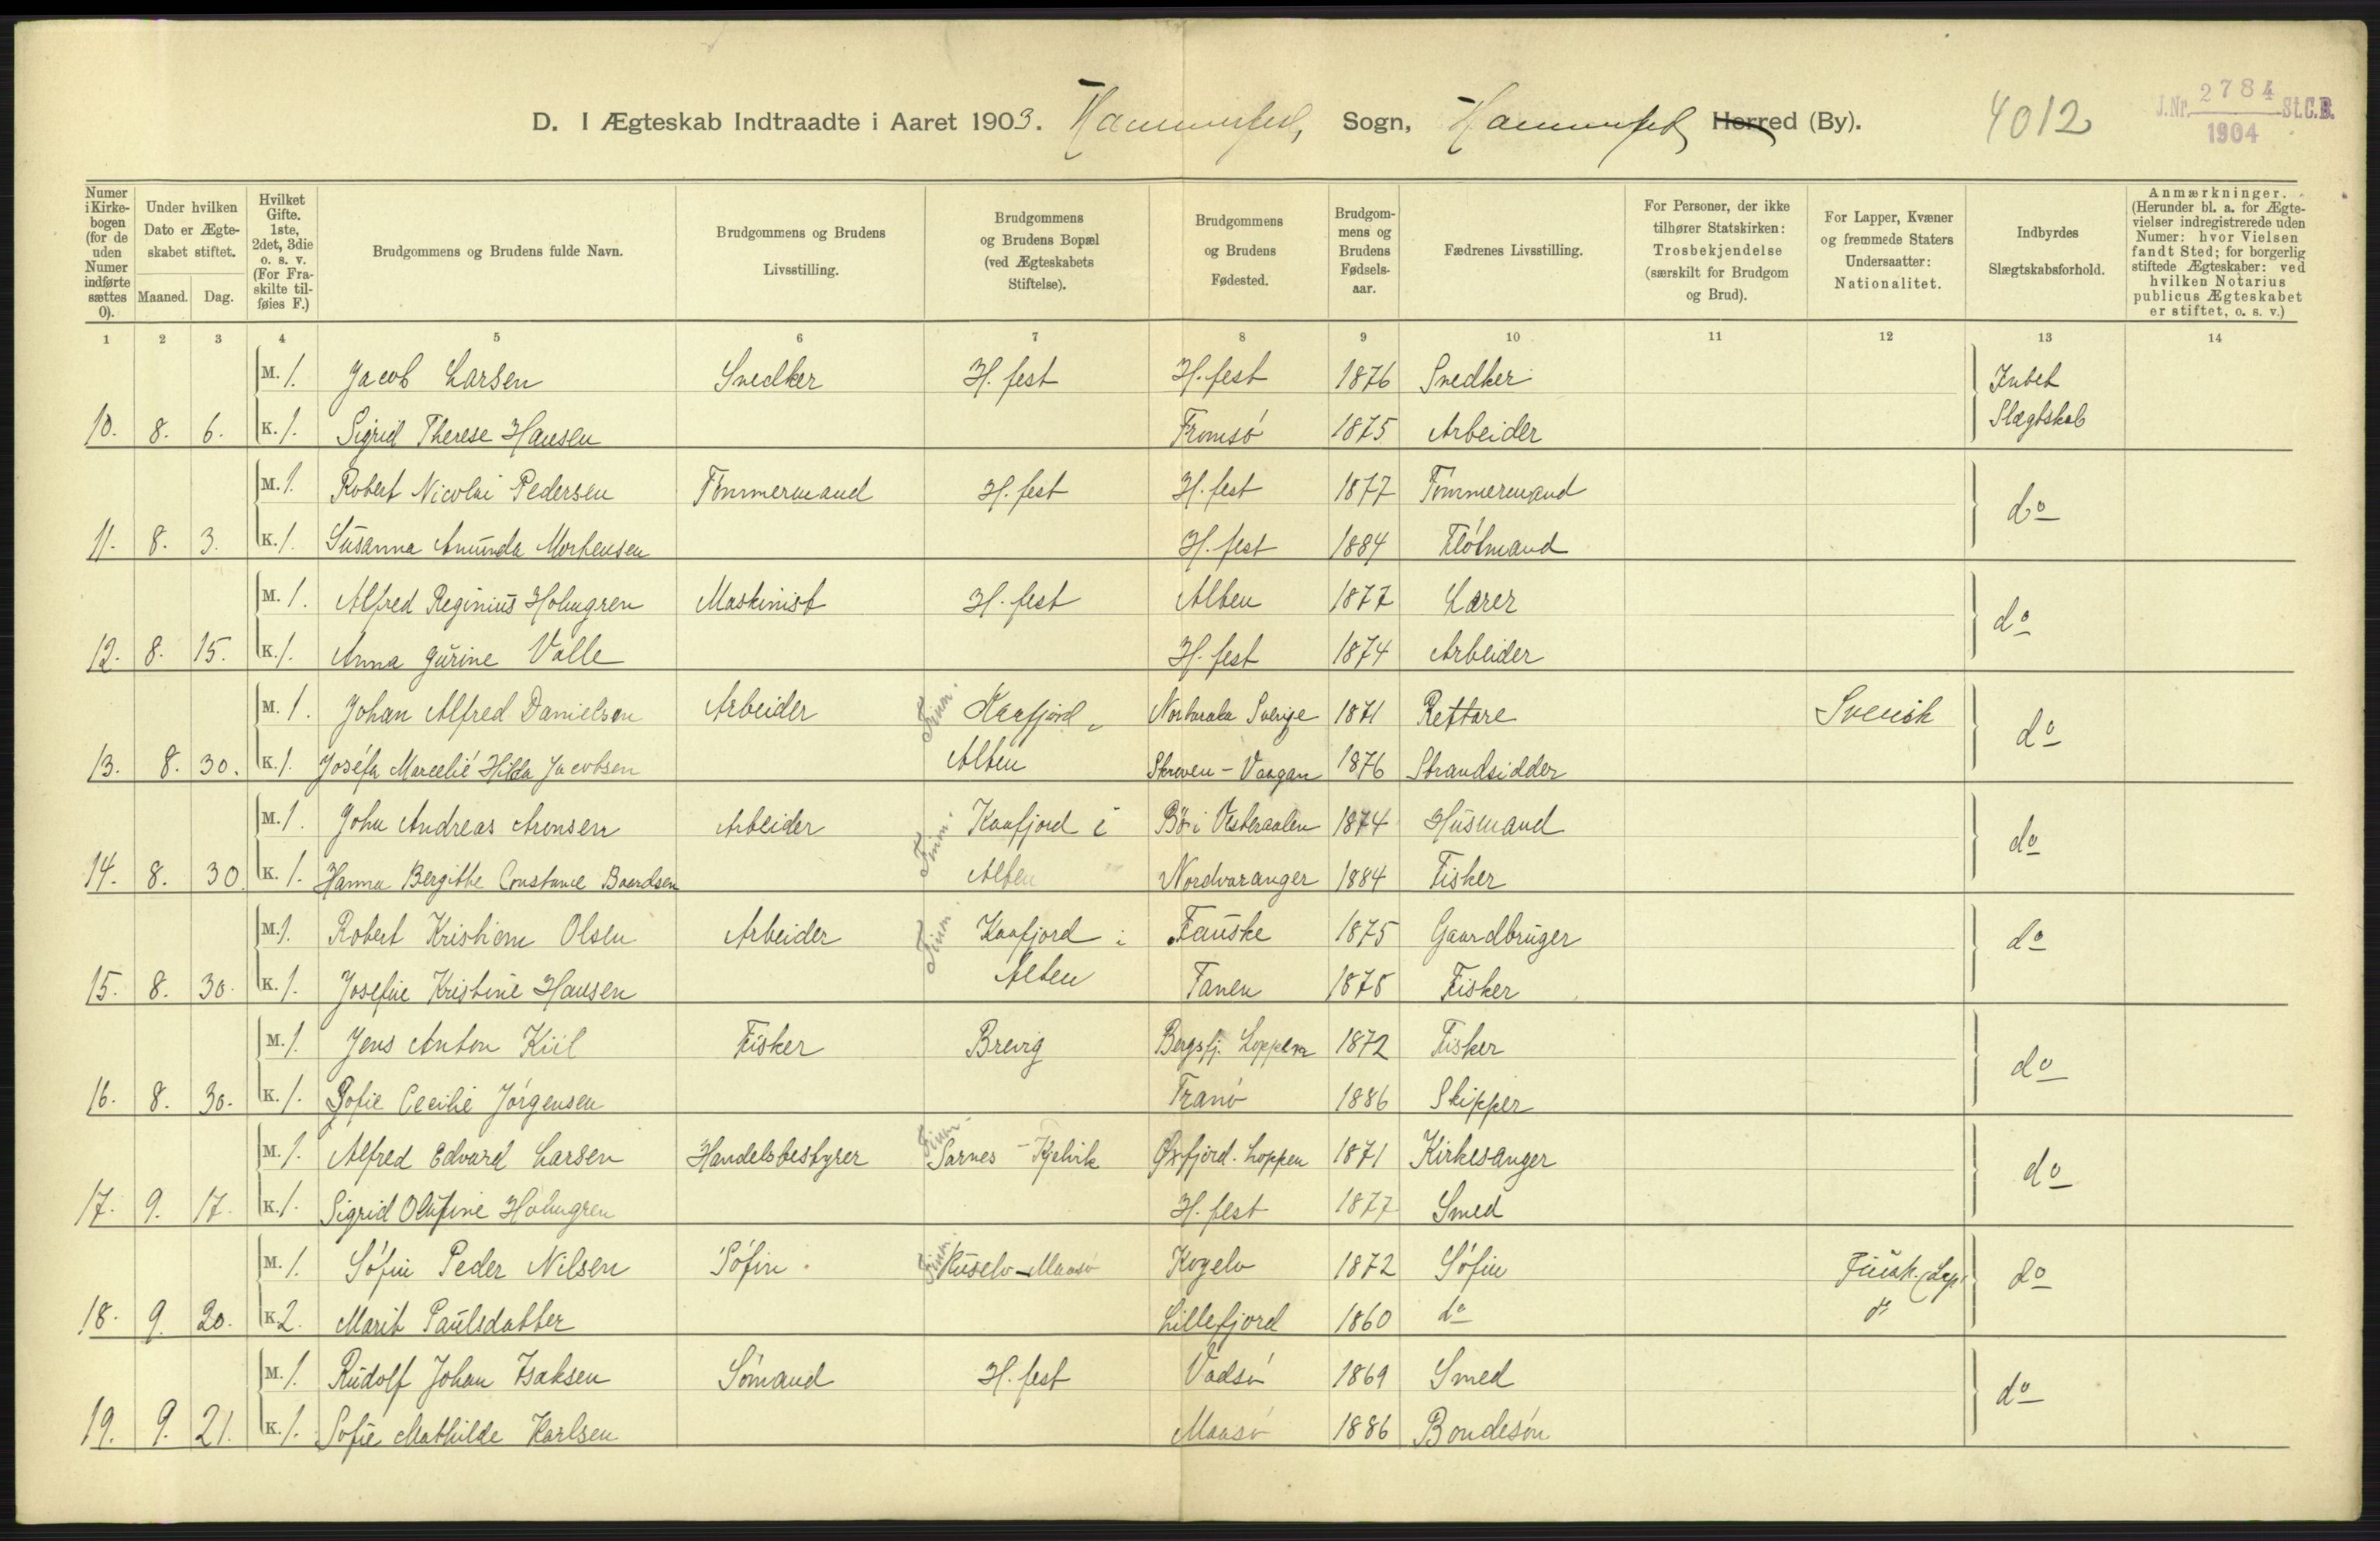 D. I Ægteskab Indtraadte i Aaret 1903. Hammerfest, Sogn, Hammerfest Herred (By). 4012
J.Nr. 2784 St.C.B.
1904
Numer i Kirkebogen (for de uden Numer indførte sættes 0).
Under hvilken Dato er Ægteskabet stiftet.
Maaned. Dag.
Hvilket Gifte. 1ste, 2det, 3die o. s. v. (For Fraskilte tilføies F.)
Brudgommens og Brudens fulde Navn.
Brudgommens og Brudens Livsstilling.
Brudgommens og Brudens Bopæl (ved Ægteskabets Stiftelse).
Brudgommens og Brudens Fødested.
Brudgommens og Brudens Fødselsaar.
Fædrenes Livsstilling.
For Personer, der ikke tilhører Statskirken: Trosbekjendelse (særskilt for Brudgom og Brud).
For Lapper, Kvæner og fremmede Staters Undersaatter: Nationalitet.
Indbyrdes Slægtskabsforhold.
Anmærkninger. (Herunder bl. a. for Ægtevielser indregistrerede uden Numer: hvor Vielsen fandt Sted; for borgerlig stiftede Ægteskaber: ved hvilken Notarius publicus Ægteskabet er stiftet, o. s. v.)
1 2 3 4 5 6 7 8 9 10 11 12 13 14
M. 1. Jacob Larsen Snedker H. fest H. fest 1876 Snedker Intet
10. 8. 6. K. 1. Sigrid Therese Hansen Tromsö 1875 Arbeider Slægtskab
M. 1. Robert Nicolai Pedersen Tömmermand H. fest H. fest 1877 Tömmermand do
11. 8. 3. K. 1. Susanna Amunda Mortensen H. fest 1884 Flötmand
M. 1. Alfred Reginius Holmgren Maskinist H. fest Alten 1877 Lærer do
12. 8. 15. K. 1. Anna Gurine Valle H. fest 1874 Arbeider
M. 1. Johan Alfred Danielson Arbeider Finm. Kaafjord i Sverige 1871 Rettare Svensk do
13. 8. 30. K. 1. Josefa Marcelie Hilda Jacobsen Alten Skroven - Vaagan 1876 Strandsidder
M. 1. John Andreas Aronsen Arbeider Finm. Kaafjord i Bö i Vesteraalen 1874 Husmand do
14. 8. 30. K. 1. Hanna Bergithe Constance Baardsen Alten Nordvaranger 1884 Fisker
M. 1. Robert Kristian Olsen Arbeider Finm. Kaafjord i Fauske 1875 Gaardbruger do
15. 8. 30. K. 1. Josefine Kristine Hansen Alten Tanen 1878 Fisker
M. 1. Jens Anton Kiil Fisker Brevig Bergsfj. Loppen 1872 Fisker do
16. 8. 30. K. 1. Sofie Cecilie Jörgensen Tranö 1886 Skipper
M. 1. Alfred Edvard Larsen Handelsbestyrer Finm. Sarnes - Kjelvik Øxfjord. Loppen 1871 Kirkesanger do
17. 9. 17. K. 1. Sigrid Olufine Holmgren H. fest 1877 Smed
M. 1. Söfin Peder Nilsen Söfin. Finm. Ruselv - Maasö Kogelv 1872 Söfin Finsk. (Lap) do
18. 9. 20. K. 2. Marit Paulsdatter Lillefjord 1860 do do
M. 1. Rudolf Johan Isaksen Sömand H. fest Vadsö 1869 Smed do
19. 9. 21. K. 1. Sofie Mathilde Karlsen Maasö 1886 Bondesön